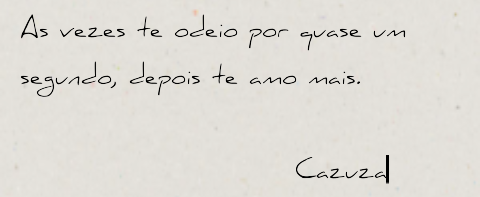 As vezes te odeio por quase um
segundo, depois te amo mais.
Cazuza